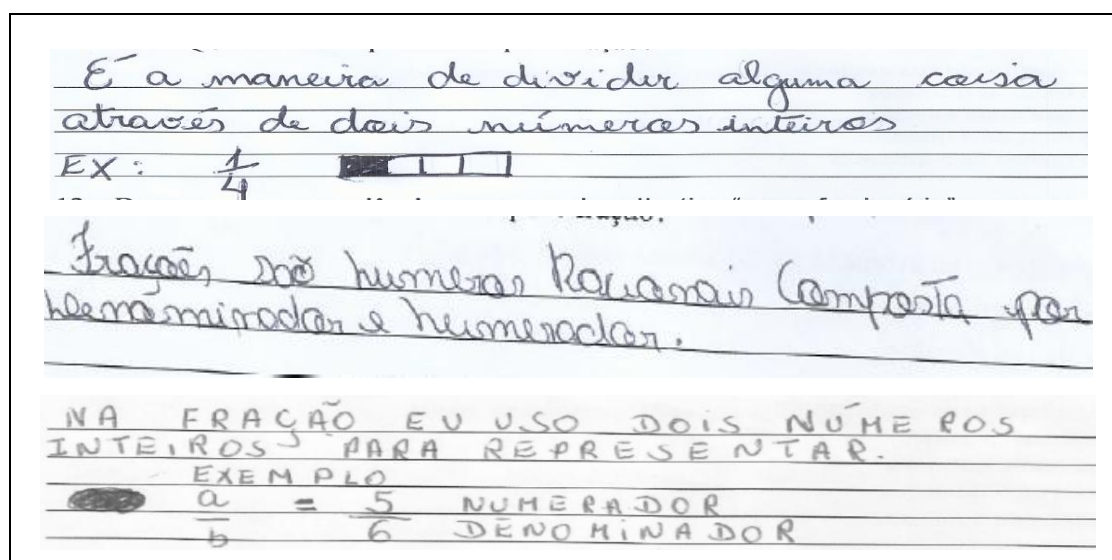 É a maneira de dividir alguma coisa
através de dois números inteiros
EX: 1/4
Frações são numeros Racionais Composta por
denominador e numerador.
NA FRAÇÃO EU USO DOIS NÚMEROS
INTEIROS PARA REPRESENTAR.
EXEMPLO
a/b = 5/6 NUMERADOR
DENOMINADOR